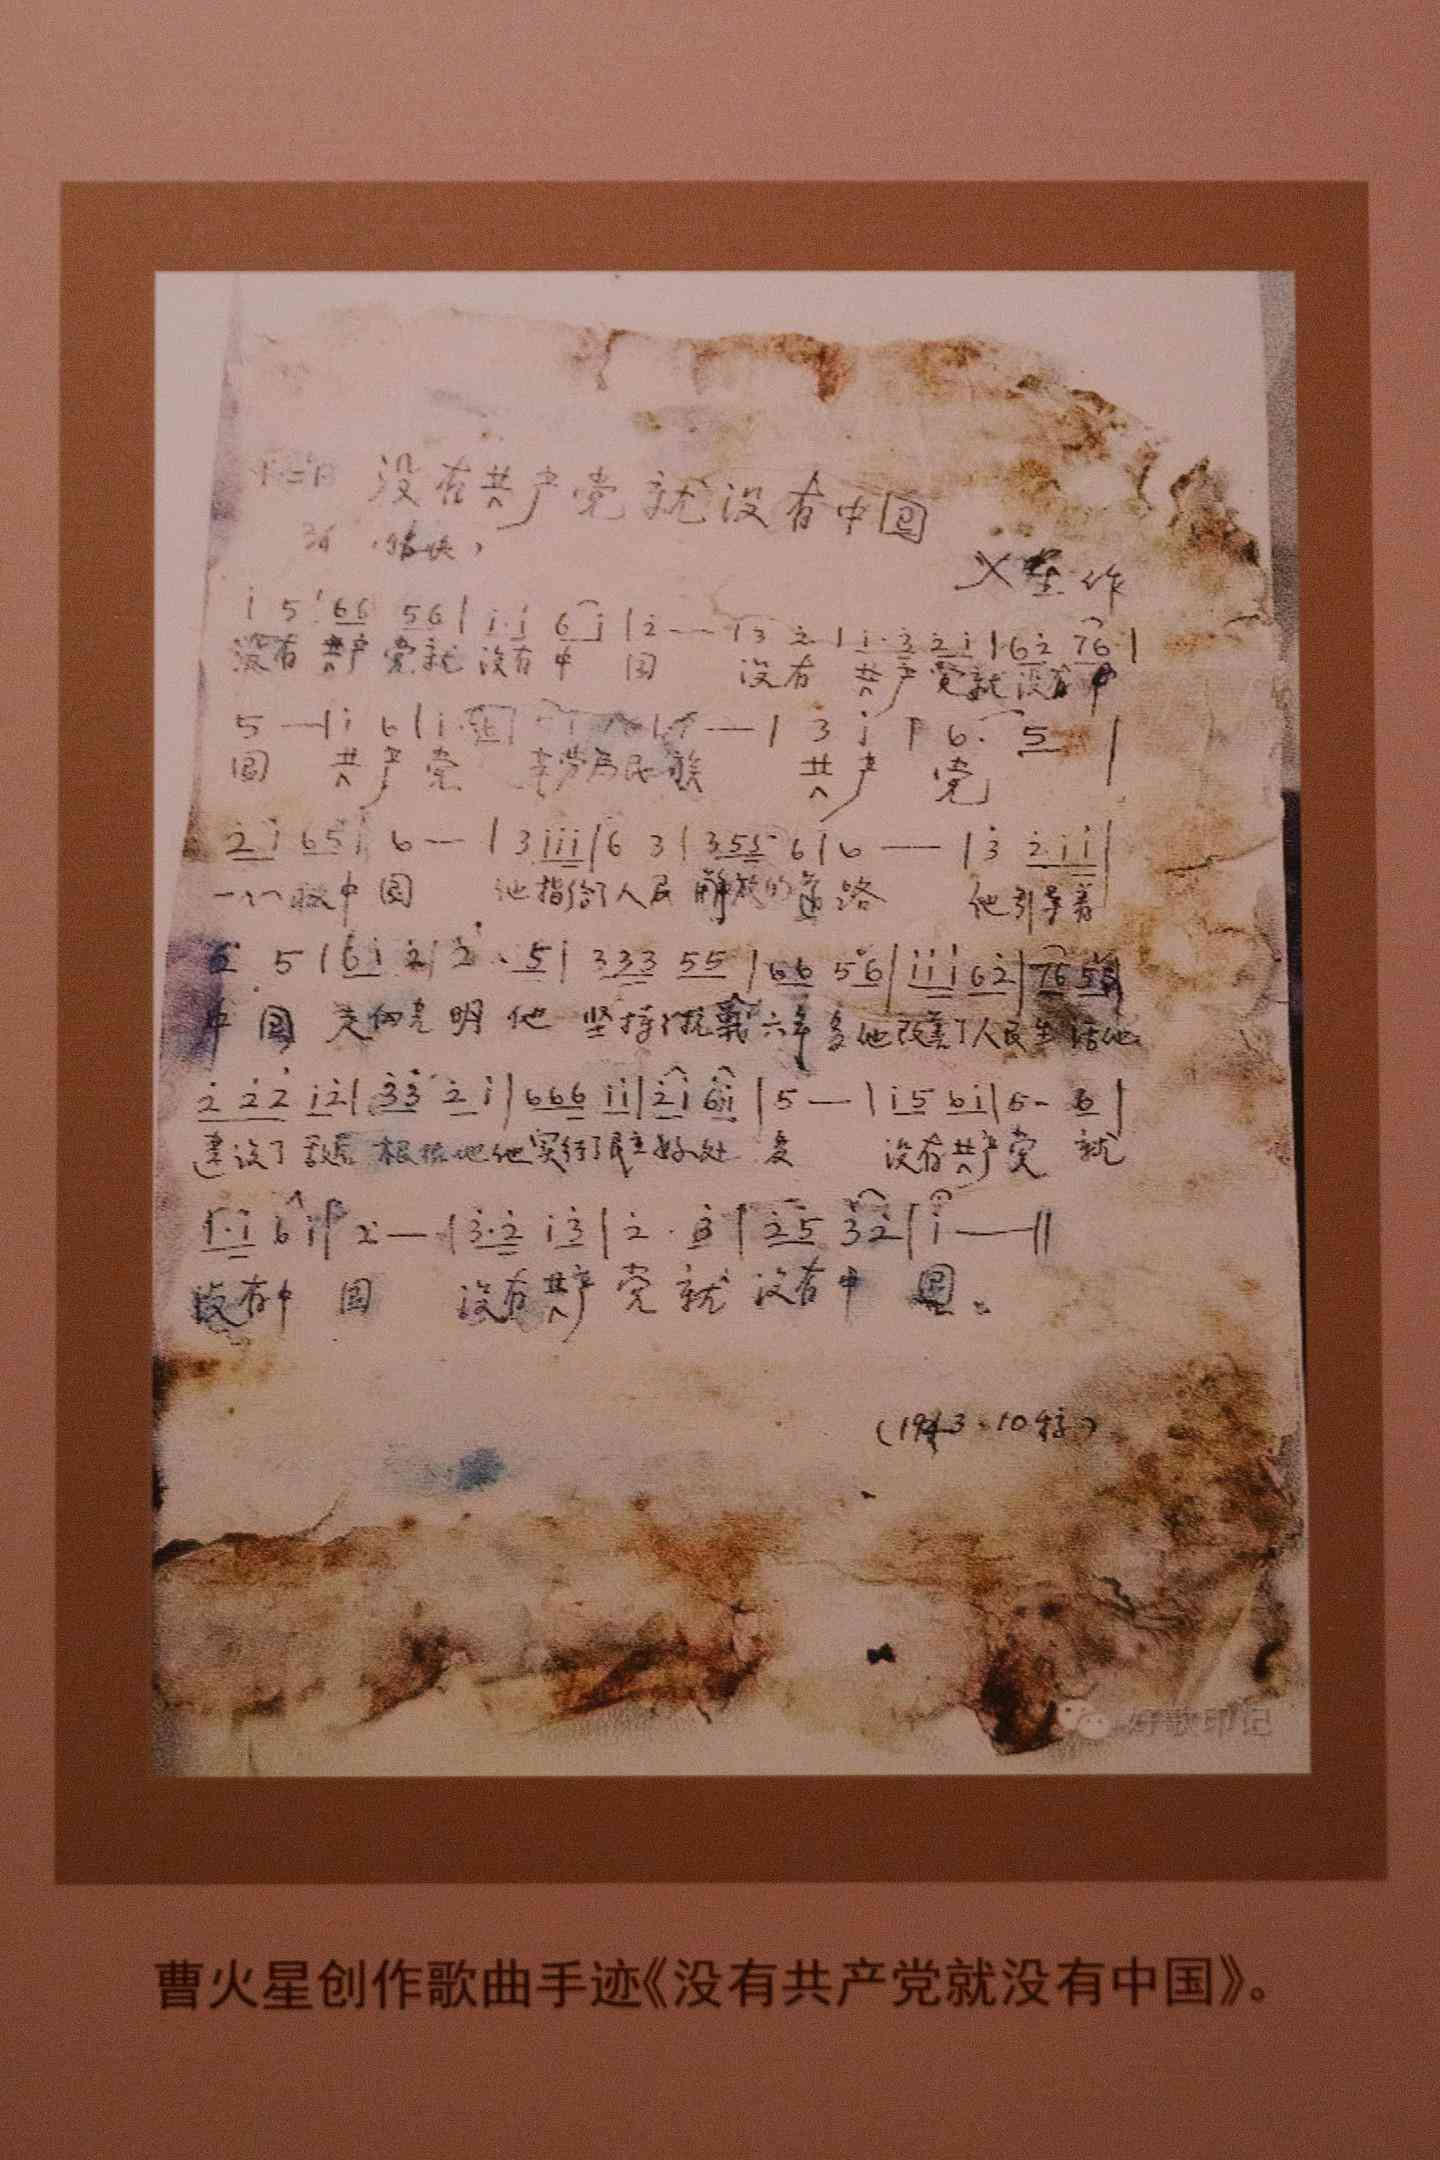 没有共产党就没有中国
火星作
i 5 66 56 | i·i 6 i | 2 — | 3 2 | i·3 2 i | 62 76 |
没有 共产 党就 没有 中 国 没有 共产 党就 没有 中
5 — | i 6 | i· — | 3 i | 6· 5 |
国 共产党 辛劳为民族 共产党
2 i 65 i 6 — | 3 iii | 6 3 | 355 6 | 6 — | 3 2·i i |
一心救中国 他指给了人民解放的道路 他引导着
5 | 6 i 2 | 2 · 5 | 333 55 | 66 56 | iii i 62 | 76 55
中国走向光明 他 坚持了抗战六年多他改善了人民生活他
2 22 i2 | 33 2 i | 666 ii | 2i 6i | 5 — | i5 6i | 5 - 6 |
建设了敌后根据地他实行了民主好处多 没有共产党 就
i·i 6 i | 2 — | 3·2 i3 | 2 · 3 | 25 32 | i — ||
没有中 国 没有共产党就没有中国。
(1943·10
好歌印记
曹火星创作歌曲手迹《没有共产党就没有中国》。